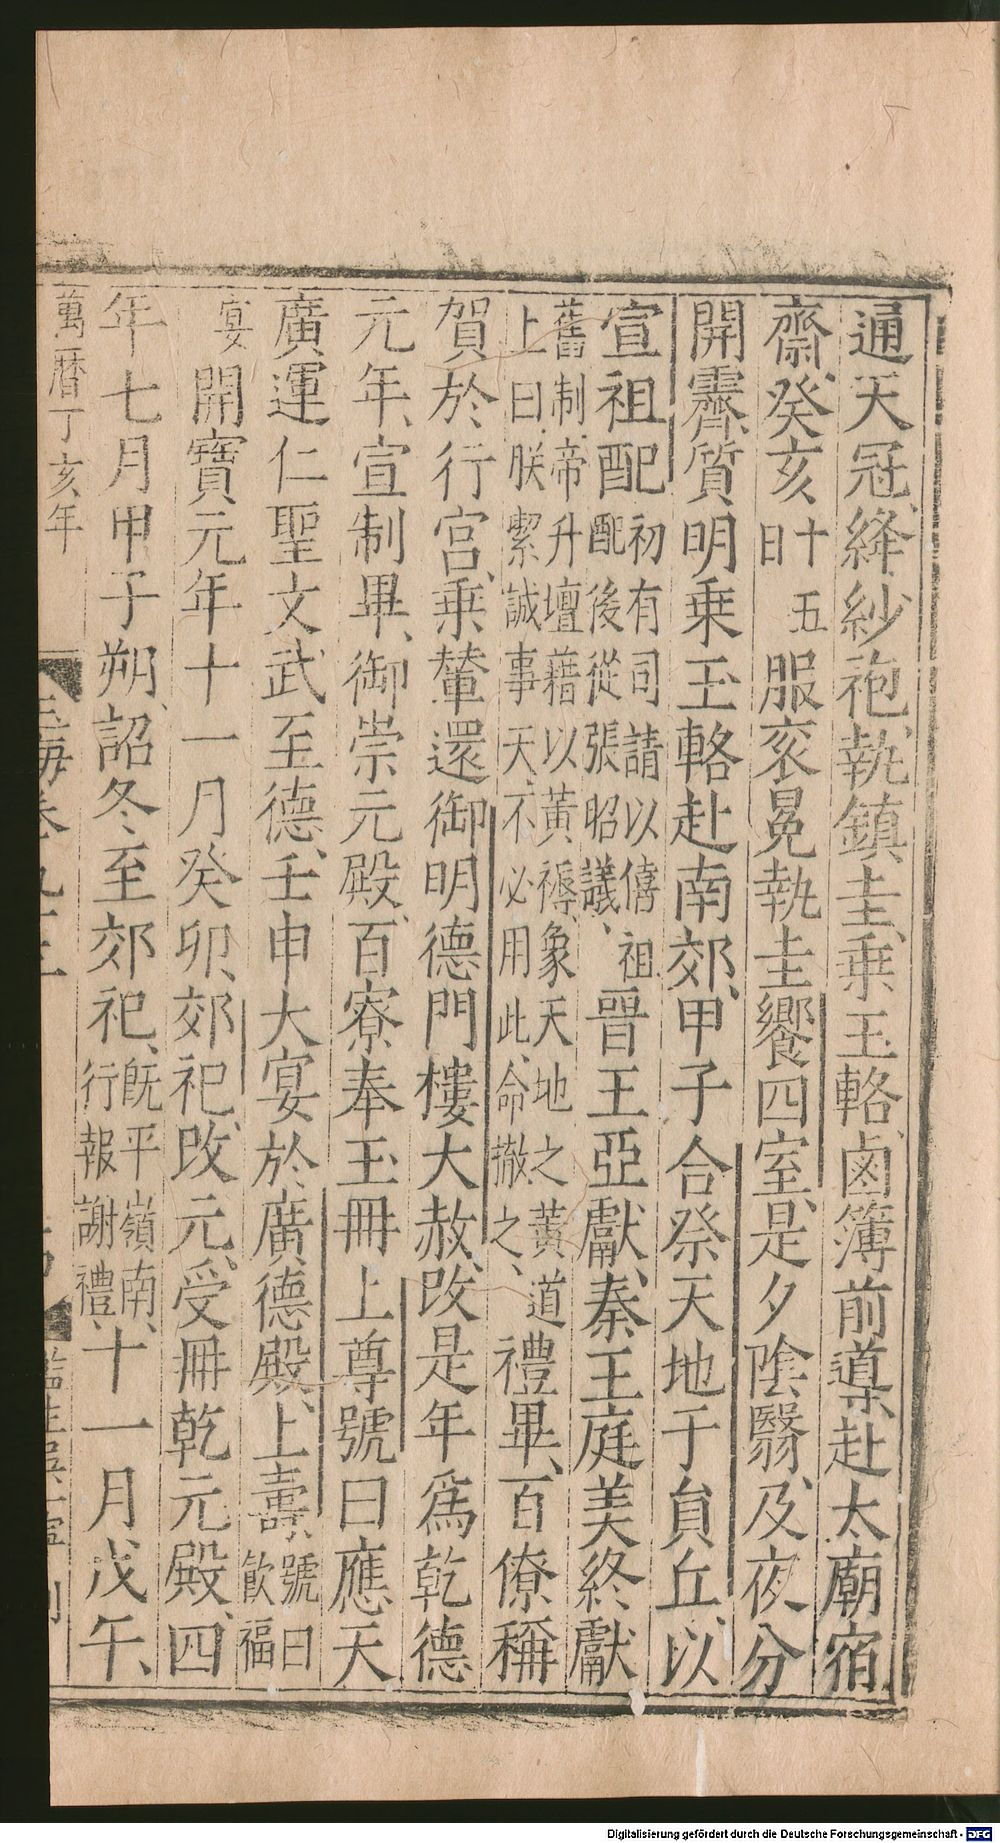 通天冠絳紗袍執鎮圭乗玉輅鹵簿前導赴太廟宿
齋癸亥十五日服衮冕執圭饗四室是夕陰翳及夜分
開霽質明乗玉輅赴南郊甲子合祭天地于貟丘以
宣祖配初有司請以僖祖配後從張昭議晉王亞獻秦王庭美終獻
舊制帝升壇藉以黃褥象天地之黃道上曰朕潔誠事天不必用此命撤之禮畢百僚稱
賀於行宮乗輦還御明德門樓大赦改是年爲乾德
元年宣制畢御崇元殿百寮奉玉冊上尊號曰應天
廣運仁聖文武至德壬申大宴於廣德殿上壽號曰飲福
宴開寶元年十一月癸卯郊祀改元受冊乾元殿四
年七月甲子朔詔冬至郊祀旣平嶺南行報謝禮十一月戊午
萬曆丁亥年
玉海卷九十三
Digitalisierung gefördert durch die Deutsche Forschungsgemeinschaft - DFG